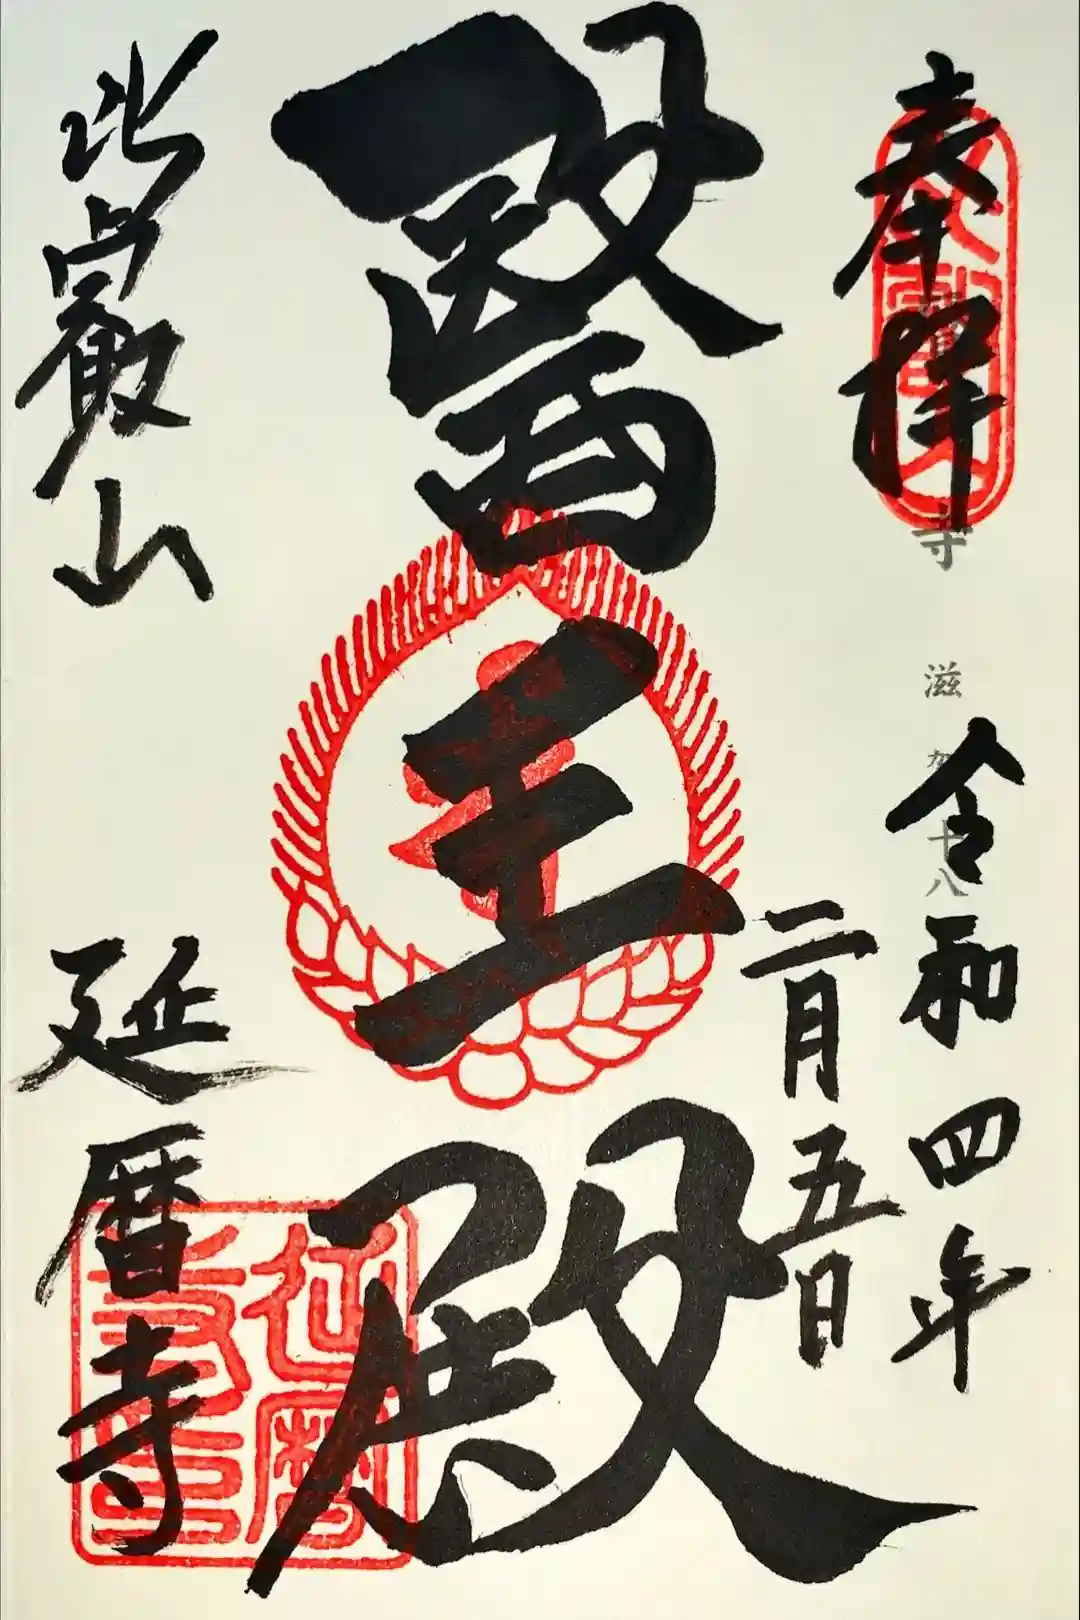 奉拝
令和四年
二月五日
醫王殿
比叡山
延暦寺
寺
滋
十八
延暦
寺印